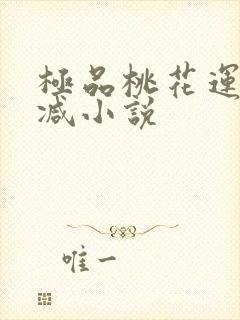 極品桃花運
减小說
唯一